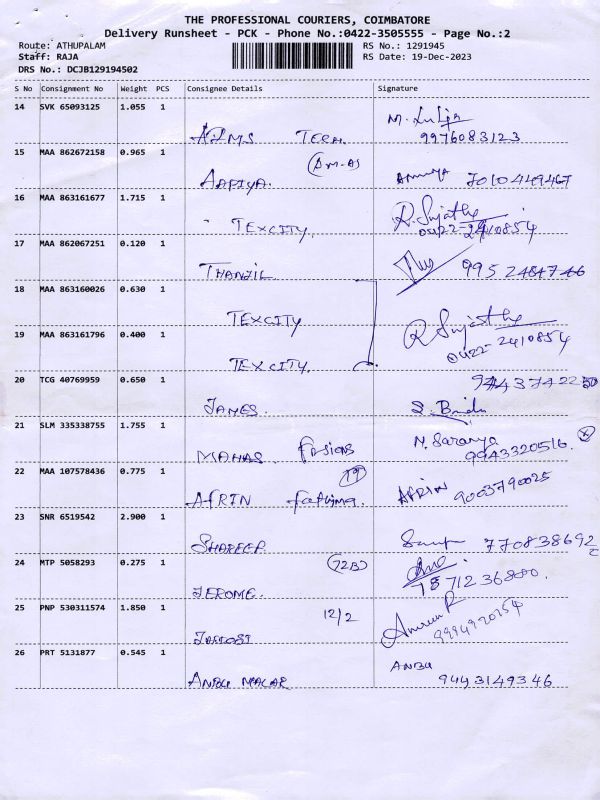 THE PROFESSIONAL COURIERS, COIMBATORE
Delivery Runsheet - PCK - Phone No.:0422-3505555 - Page No.:2
Route: ATHUPALAM RS No.: 1291945
Staff: RAJA RS Date: 19-Dec-2023
DRS No.: DCJB129194502
S No Consignment No Weight PCS Consignee Details Signature
14 SVK 65093125 1.055 1
TECH. 9976083123
15 MAA 862672158 0.965 1
7010449467
16 MAA 863161677 1.715 1 R. Sujatha
TEXCITY. 0422-2410854
17 MAA 862067251 0.120 1
THANZIL
18 MAA 863160026 0.630 1
TEXCITY R Sujatha
19 MAA 863161796 0.400 1 0422-2410854
TEXCITY.
20 TCG 40769959 0.650 1
JAMES.
21 SLM 335338755 1.755 1 N. Saranya
9943320516.
22 MAA 107578436 0.775 1
AFRIN fathima. AFRIN 9003790025
23 SNR 6519542 2.900 1
SHAREEF.
24 MTP 5058293 0.275 1 (72B)
JEROME.
25 PNP 530311574 1.850 1 12/2
9994920254
26 PRT 5131877 0.545 1 ANBU
ANBU MALAR 9443149346